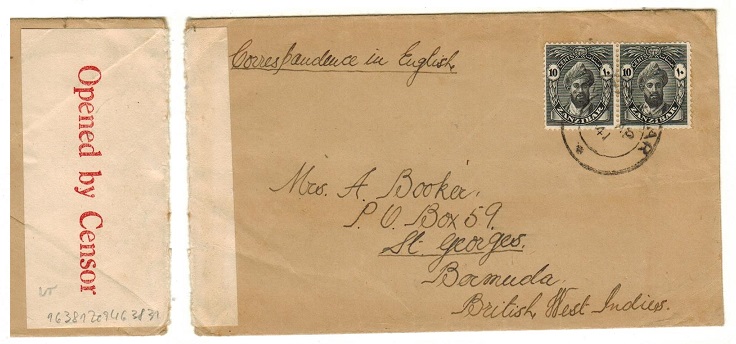 Opened by Censor
Correspondence in English
10
ZANZIBAR
10
ZANZIBAR
Mrs. A. Booker.
P. O. Box 59.
St. Georges.
Bermuda.
British West Indies.